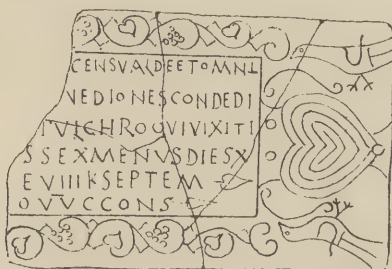 CENSVALDEETOMNI
VEDIONESCONDEDI
TVICHROOVIVIXITI
SSEXMENUSDIESX
EVIIIIKSEPTEM
OVVCCONS